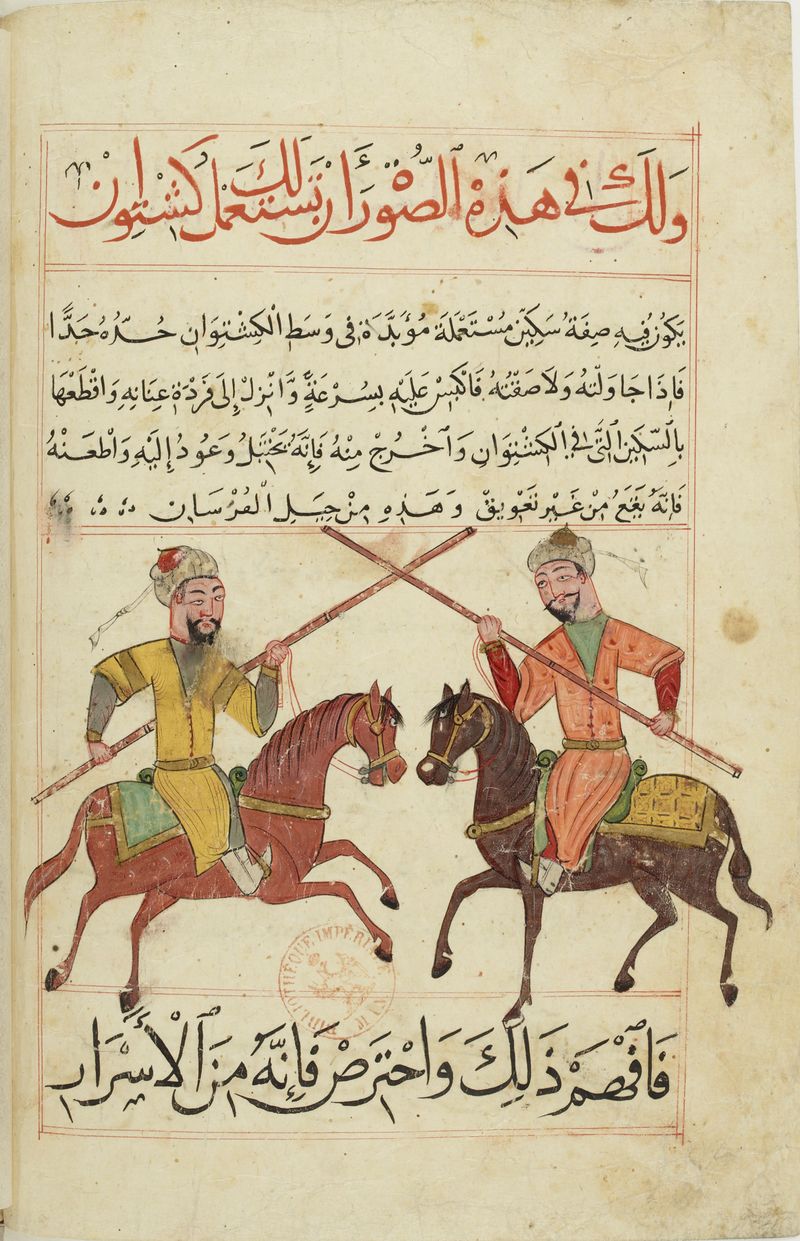 وَلَكَ فِي هَذِهِ الصُّورَةِ أَنْ تَسْتَعْمِلَ لَكَ كُشْتِوَانْ
يَكُونُ فِيهِ صِفَةُ سِكِّينٍ مُسْتَعْمَلَةَ مُؤَبَّدَةً فِى وَسَطِ الْكِشْتِوَانِ حُدَّهُ حَدًّا
فَإِذَا جَاوَلْتَهُ وَلَاصَقْتَهُ فَانْكَبِسْ عَلَيْهِ بِسُرْعَةٍ وَّانْزِلْ إِلَى فَرْدَةِ عِنَانِهِ وَاقْطَعْهَا
بِالسِّكِّينِ الَّتِى فِى الْكِشْتِوَانِ وَاخْرُجْ مِنْهُ فَإِنَّهُ يَخْتَبِلُ وَعُودُ إِلَيْهِ وَاطْعَنْهُ
فَإِنَّهُ يَقَعُ مِنْ غَيْرِ تَعْوِيقْ وَهَذِهِ مِنْ حِيَلِ الْفُرْسَانِ
BIBLIOTHÈQUE IMPÉRIALE
فَافْهَمْ ذَلِكَ وَاحْتَرِصْ فَإِنَّهُ مِنَ الْأَسْرَارِ